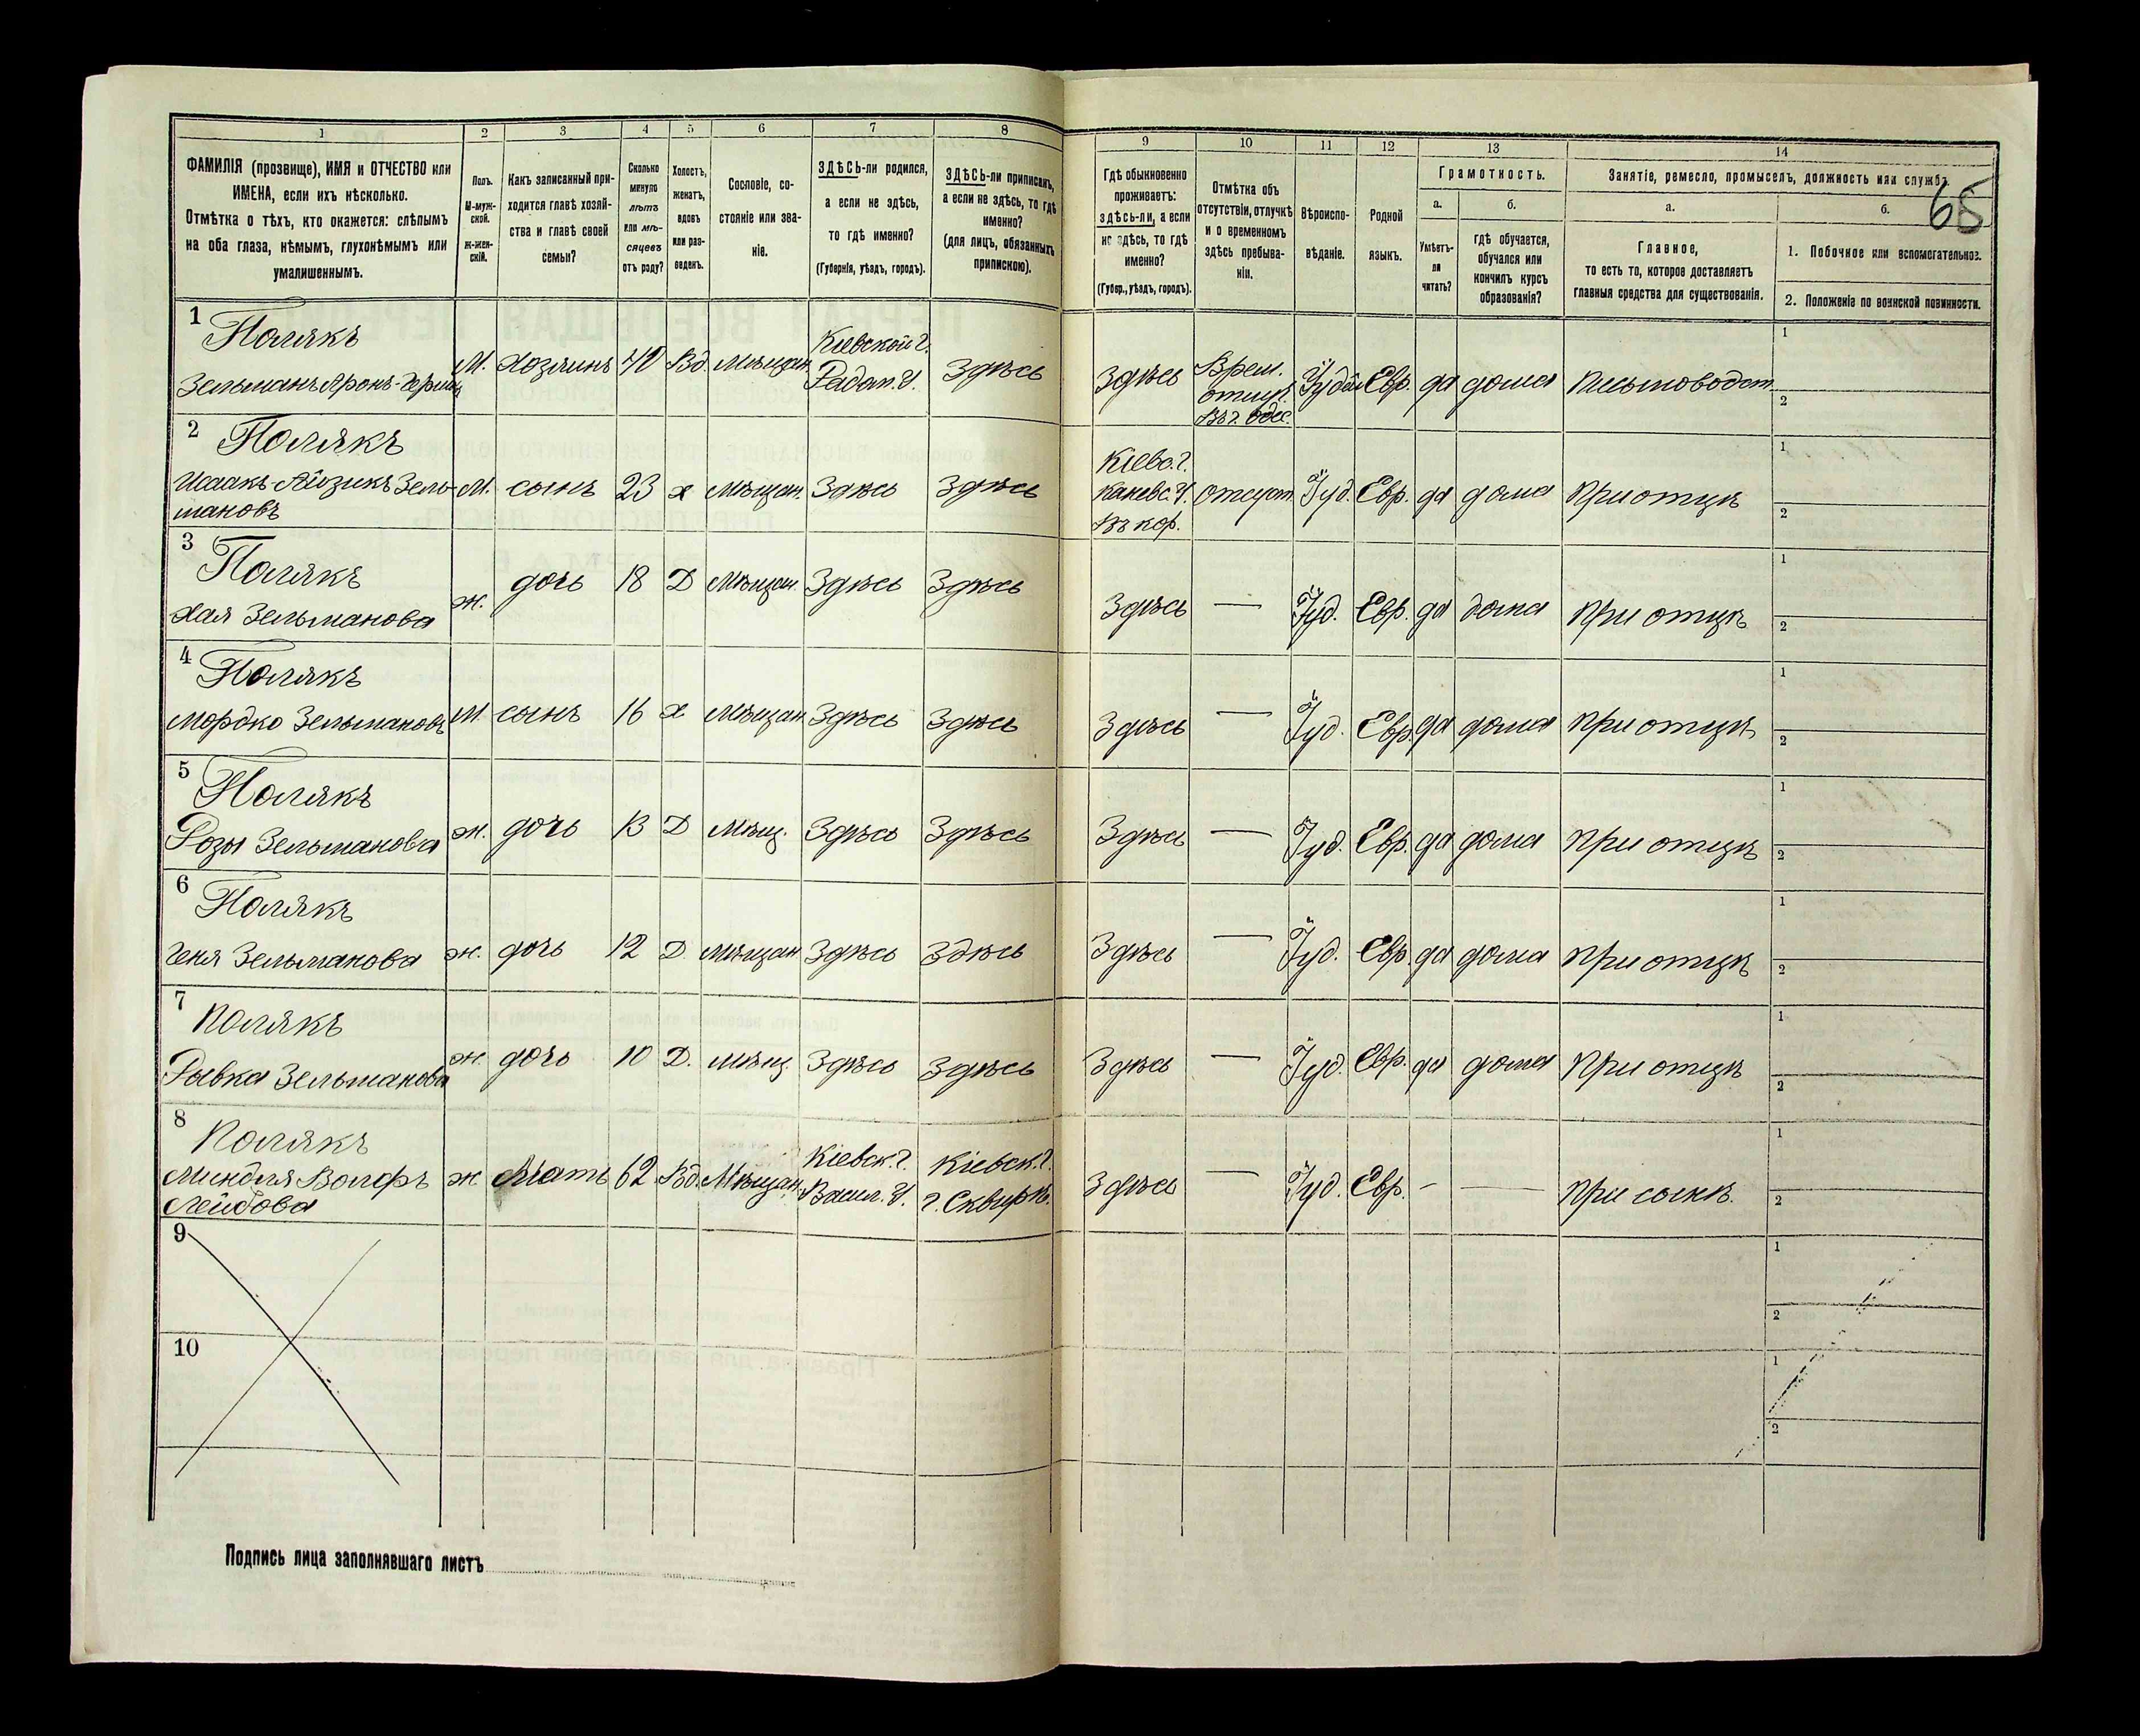 1 2 3 4 5 6 7 8 9 10 11 12 13 14
ФАМИЛІЯ (прозвище), ИМЯ и ОТЧЕСТВО или
ИМЕНА, если ихъ нѣсколько.
Отмѣтка о тѣхъ, кто окажется: слѣпымъ
на оба глаза, нѣмымъ, глухонѣмымъ или
умалишеннымъ.
Полъ.
М-муж-
ской.
Ж-жен-
скій.
Какъ записанный при-
ходится главѣ хозяй-
ства и главѣ своей
семьи?
Сколько
минуло
лѣтъ
или мѣ-
сяцевъ
отъ роду?
Холостъ,
женатъ,
вдовъ
или раз-
веденъ.
Сословіе, со-
стояніе или зва-
ніе.
ЗДѢСЬ-ли родился,
а если не здѣсь,
то гдѣ именно?
(Губернія, уѣздъ, городъ).
ЗДѢСЬ-ли приписанъ,
а если не здѣсь, то гдѣ
именно?
(для лицъ, обязанныхъ
припискою).
Гдѣ обыкновенно
проживаетъ:
здѣсь-ли, а если
не здѣсь, то гдѣ
именно?
(Губер., уѣздъ, городъ).
Отмѣтка объ
отсутствіи, отлучкѣ
и о временномъ
здѣсь пребыва-
ніи.
Вѣроиспо-
вѣданіе.
Родной
языкъ.
Грамотность.
а.
Умѣетъ-
ли
читать?
б.
гдѣ обучается,
обучался или
кончилъ курсъ
образованія?
Занятіе, ремесло, промыселъ, должность или служба.
65
а.
Главное,
то есть то, которое доставляетъ
главныя средства для существованія.
б.
1. Побочное или вспомогательное.
2. Положеніе по воинской повинности.
1 Полякъ
Зельманъ Аронъ-Герш
М. Хозяинъ 40 Вд. Мѣщан.
Кіевской г.
Радом. У. Здѣсь Здѣсь
Врем.
отлуч.
Въ г. Одес.
Іудей Евр. да дома Письмоводст.
1
2
2 Полякъ
Исаакъ-Айзикъ Зель-
мановъ
М. сынъ 23 х Мѣщан. Здѣсь Здѣсь
Кіевс. г.
Каневс. У.
Въ кор.
отсут. Іуд. Евр. да дома При отцѣ
1
2
3 Полякъ
Хая Зельманова
ж. дочь 18 Д Мѣщан. Здѣсь Здѣсь Здѣсь — Іуд. Евр. да дома При отцѣ
1
2
4 Полякъ
Мордко Зельмановъ
М. сынъ 16 х Мѣщан. Здѣсь Здѣсь Здѣсь — Іуд. Евр. да дома При отцѣ
1
2
5 Полякъ
Розы Зельманова
ж. дочь 13 Д Мѣщ. Здѣсь Здѣсь Здѣсь — Іуд. Евр. да дома При отцѣ
1
2
6 Полякъ
Геня Зельманова
ж. дочь 12 Д. Мѣщан. Здѣсь Здѣсь Здѣсь — Іуд. Евр. да дома При отцѣ
1
2
7 Полякъ
Рывка Зельманова
ж. дочь 10 Д. Мѣщ. Здѣсь Здѣсь Здѣсь — Іуд. Евр. да дома При отцѣ
1
2
8 Полякъ
Миндля Волфъ
Лейбова
ж Мать 62 Вд. Мѣщан.
Кіевск. г.
Васил. У.
Кіевск. г.
г. Сквирѣ.
Здѣсь — Іуд. Евр. - — При сынѣ.
1
2
9
1
2
10
1
2
Подпись лица заполнявшаго листъ